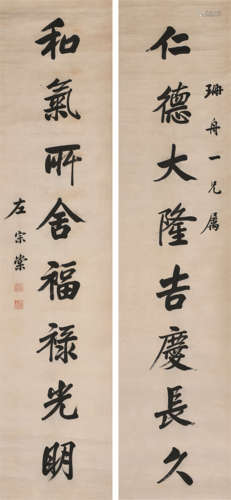 珊舟一兄属
仁德大隆吉慶長久
和氣所舍福祿光明
左宗棠